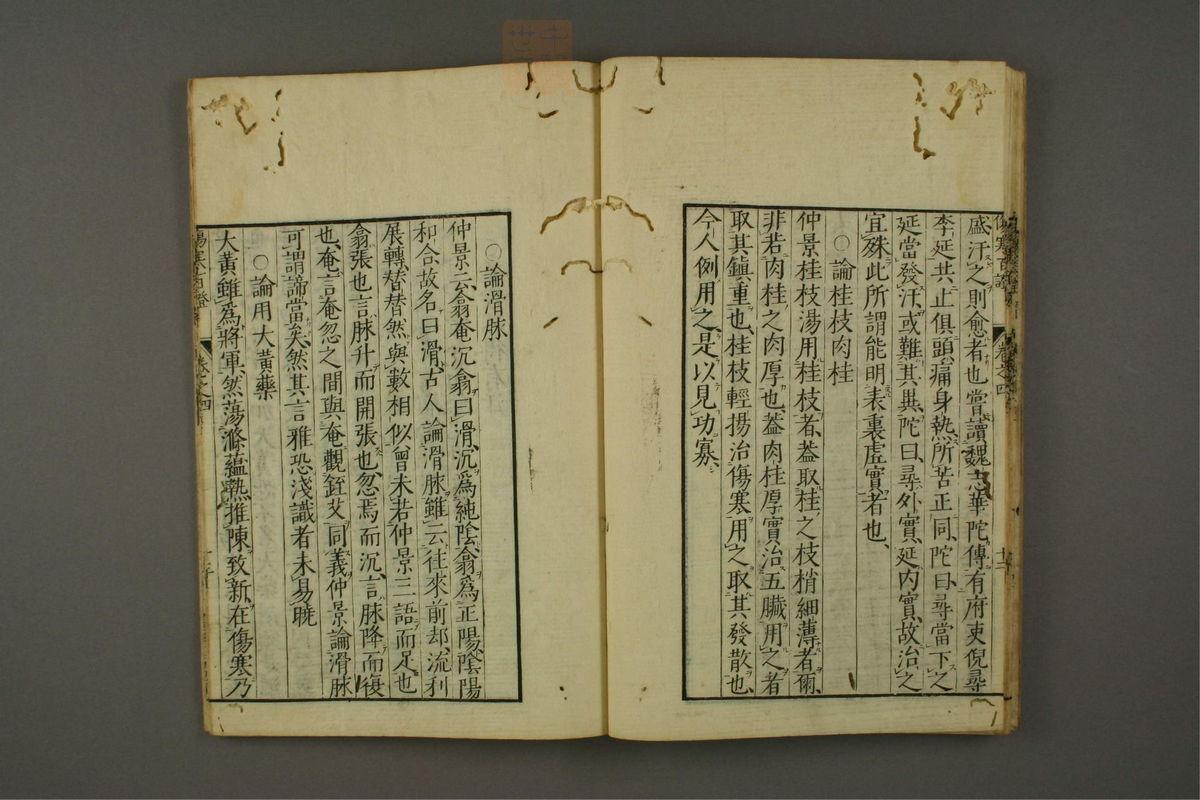 盛汗之則愈者也嘗讀魏志華陀傳有府吏倪尋
李延共止俱頭痛身熱所苦正同陀曰尋當下之
延當發汗或難其異陀曰尋外實延内實故治之
宜殊此所謂能明表裏虚實者也
○論桂枝肉桂
仲景桂枝湯用桂枝者葢取桂之枝梢細薄者爾
非若肉桂之肉厚也葢肉桂厚實治五臓用之者
取其鎮重也桂枝輕揚治傷寒用之取其發散也
今人例用之是以見功寡
○論滑脉
仲景云翕奄沉翕曰滑沉爲純陰翕爲正陽陰陽
和合故名曰滑古人論滑脉雖云往來前却流利
展轉替替然與數相似曾未若仲景三語而足也
翕張也言脉升而開張也忽焉而沉言脉降而復
也奄言奄忽之間與奄觀銍艾同義仲景論滑脉
可謂諦當矣然其言雅恐淺識者未易曉
○論用大黄藥
大黄雖爲將軍然蕩滌蘊熱推陳致新在傷寒乃
卷之四